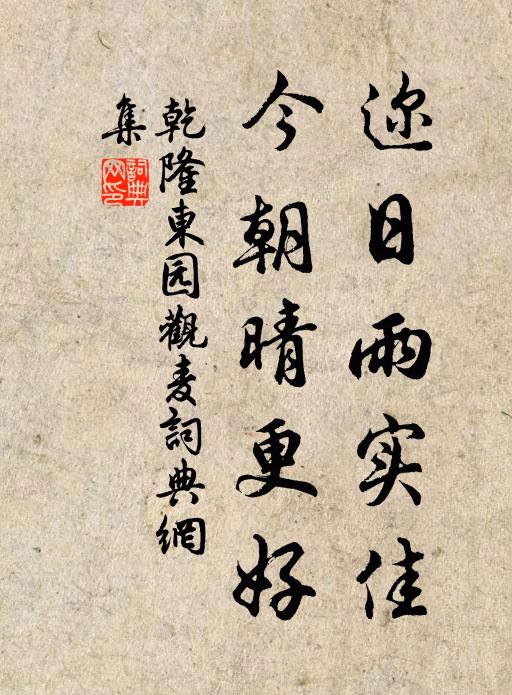 迩日雨实佳
今朝晴更好
乾隆東园觀麦詞典網
集
詞典網印